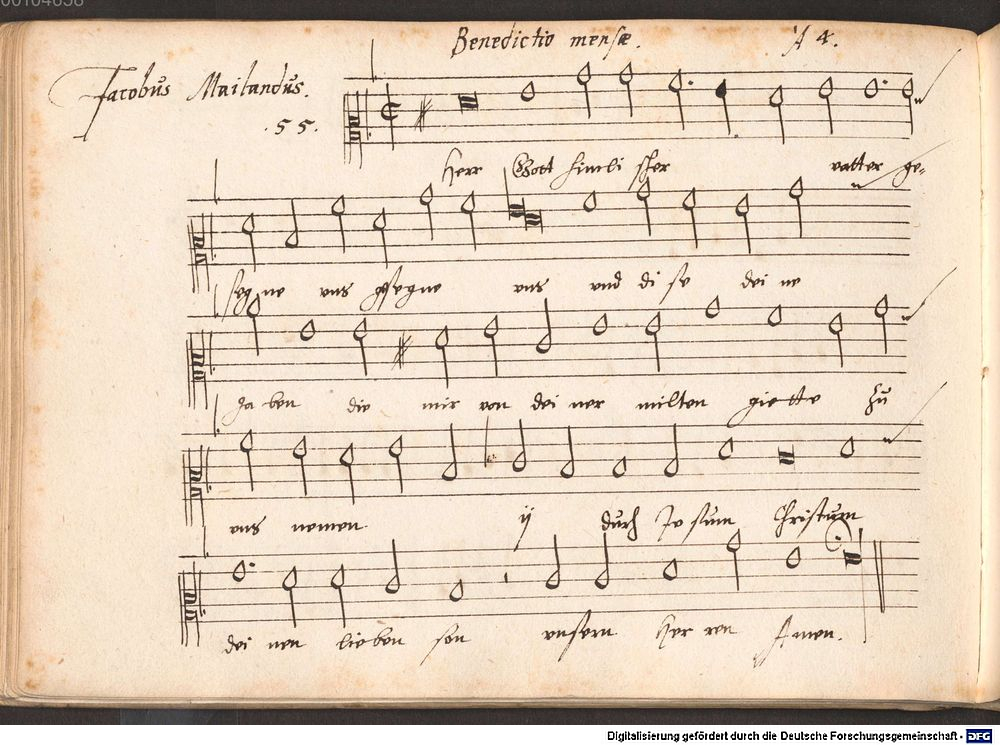 00104638
Benedictio mensæ. A 4.
Jacobus Mailandus.
.55.
Herr Gott himli scher vatter ge-
segne vns gesegne vns vnd di se dei ne
ga ben die mir von dei ner milten giette zu
vns nemen ij durch Je sum Christum
dei nen lieben son vnsern Her ren Amen.
Digitalisierung gefördert durch die Deutsche Forschungsgemeinschaft - DFG